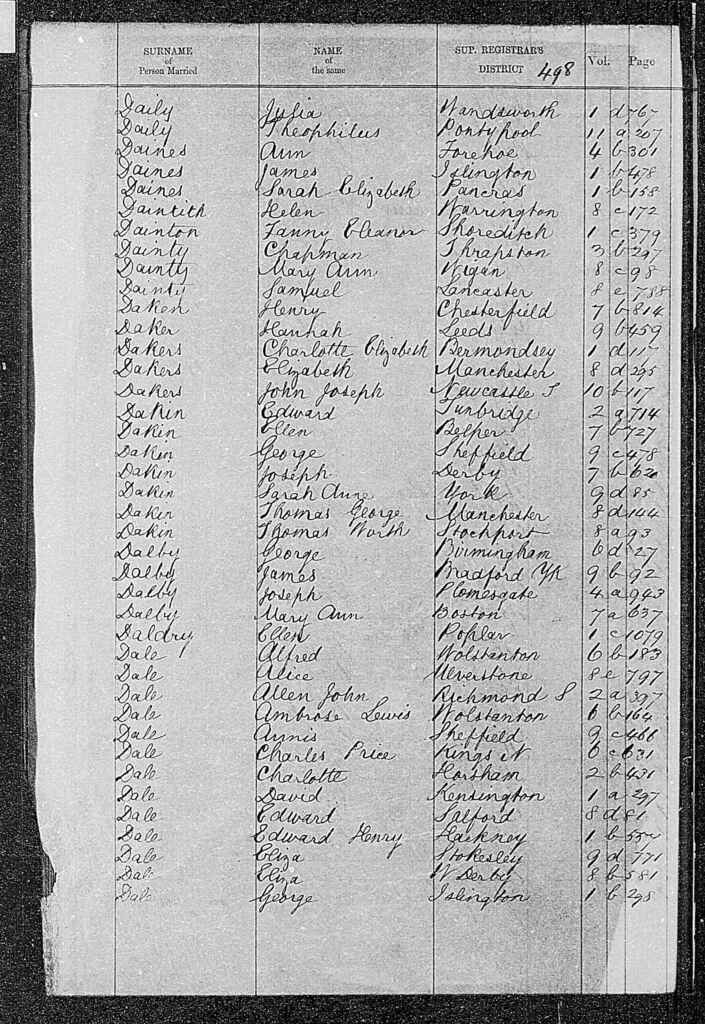 SURNAME of Person Married NAME of the same SUP. REGISTRAR'S DISTRICT 498 Vol. Page
Daily Julia Wandsworth 1 d 767
Daily Theophilus Pontypool 11 a 207
Daines Ann Forehoe 4 b 301
Daines James Islington 1 b 478
Daines Sarah Elizabeth Pancras 1 b 158
Daintith Helen Warrington 8 c 172
Dainton Fanny Eleanor Shoreditch 1 c 379
Dainty Chapman Thrapston 3 b 297
Dainty Mary Ann Wigan 8 c 98
Dainty Samuel Lancaster 8 e 788
Daken Henry Chesterfield 7 b 814
Daker Hannah Leeds 9 b 459
Dakers Charlotte Elizabeth Bermondsey 1 d 117
Dakers Elizabeth Manchester 8 d 295
Dakers John Joseph Newcastle T 10 b 117
Dakin Edward Tunbridge 2 a 714
Dakin Ellen Belper 7 b 727
Dakin George Sheffield 9 c 478
Dakin Joseph Derby 7 b 620
Dakin Sarah Anne York 9 d 85
Dakin Thomas George Manchester 8 d 144
Dakin Thomas Worth Stockport 8 a 93
Dalby George Birmingham 6 d 27
Dalby James Bradford Yk 9 b 92
Dalby Joseph Plomesgate 4 a 943
Dalby Mary Ann Boston 7 a 637
Daldry Ellen Poplar 1 c 1079
Dale Alfred Wolstanton 6 b 183
Dale Alice Ulverstone 8 e 797
Dale Allen John Richmond S 2 a 397
Dale Ambrose Lewis Wolstanton 6 b 164
Dale Annis Sheffield 9 c 466
Dale Charles Price Kings N 6 c 631
Dale Charlotte Horsham 2 b 431
Dale David Kensington 1 a 297
Dale Edward Salford 8 d 81
Dale Edward Henry Hackney 1 b
Dale Eliza Stokesley 9 d 771
Dale Eliza W Derby 8 b 581
Dale George Islington 1 b 298